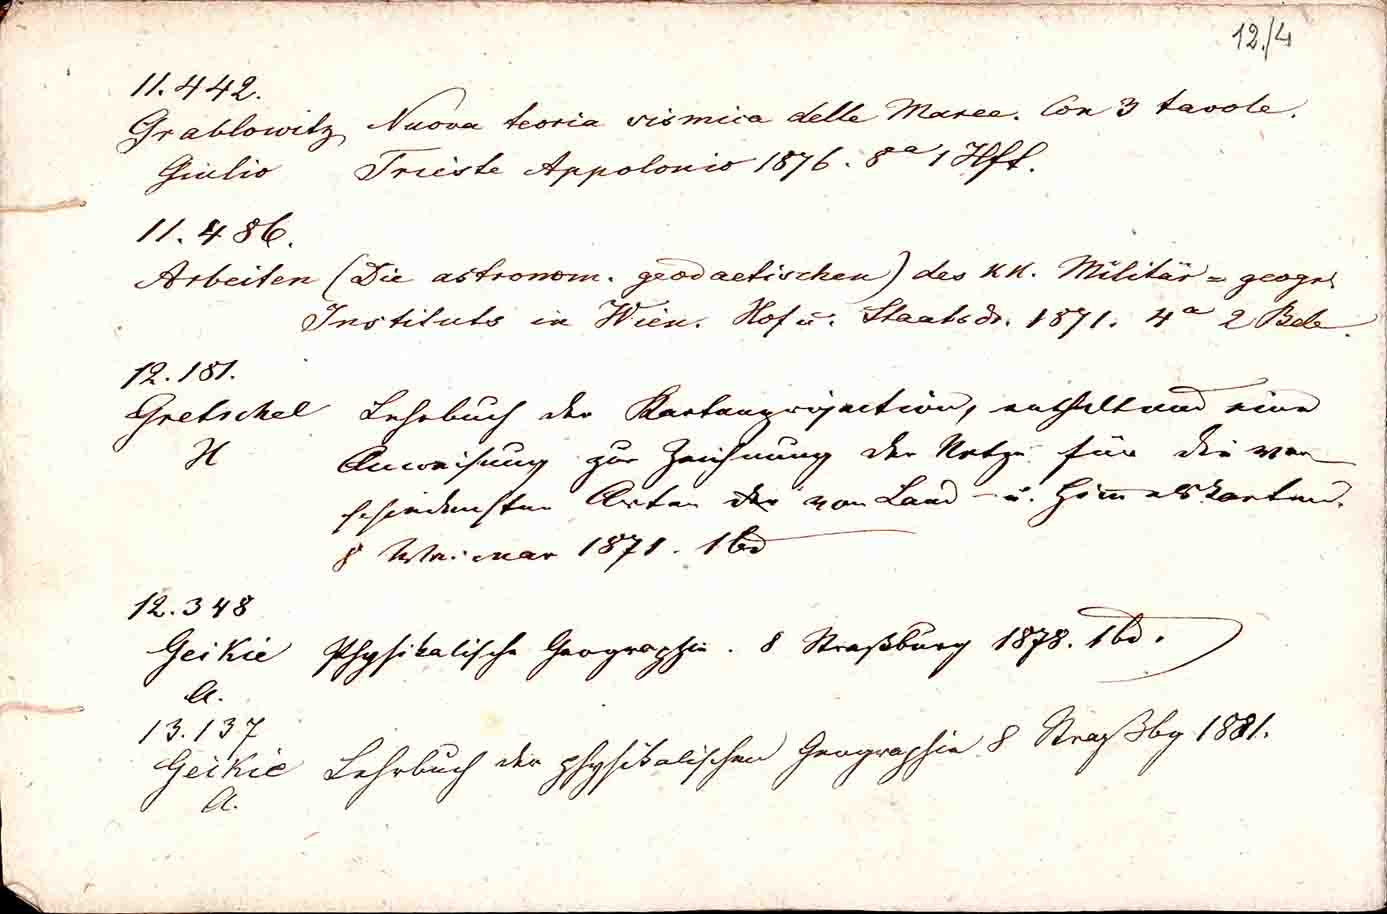 12./4
11.442.
Grablowitz, Nuova teoria sismica delle Maree. Con 3 tavole.
Giulio Trieste Appolonio 1876. 8ª 1 Hft.
11.486.
Arbeiten (Die astronom. geodaetischen) des kk. Militär=geogr.
Instituts in Wien. Hof u. Staatsdr. 1871. 4ª 2 Bde.
12.181.
Gretschel Lehrbuch der Kartenprojection, enthaltend eine
H Anweisung zur Zeichnung der Netze für die ver
schiedensten Arten der von Land- u. Himmelskarten.
8 Weimar 1871. 1 bd
12.348
Geikie Physikalische Geographie. 8 Straßburg 1878. 1 bd.
A.
13.137
Geikie Lehrbuch der physikalischen Geographie 8 Straßbg 1881.
A.